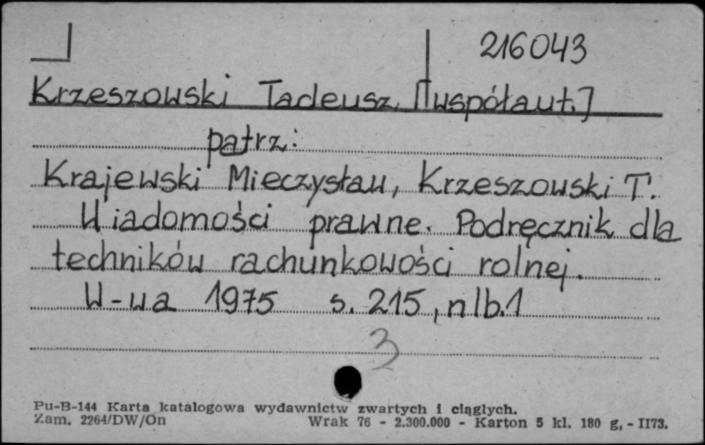 216043
Krzeszowski Tadeusz [współaut.]
patrz:
Krajewski Mieczysław, Krzeszowski T.
Wiadomości prawne. Podręcznik dla
techników rachunkowości rolnej.
W-wa 1975 s. 215, nlb.1
3
Pu-B-144 Karta katalogowa wydawnictw zwartych i ciągłych.
Zam. 2264/DW/On Wrak 76 - 2.300.000 - Karton 5 kl. 180 g. - II73.